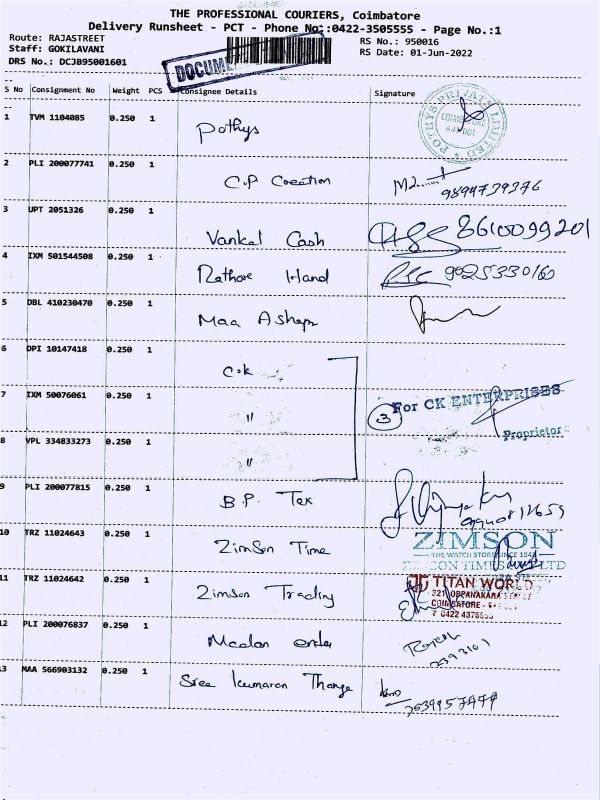 THE PROFESSIONAL COURIERS, Coimbatore
Delivery Runsheet - PCT - Phone No.:0422-3505555 - Page No.:1
Route: RAJASTREET
RS No.: 950016
Staff: GOKILAVANI
RS Date: 01-Jun-2022
DRS No.: DCJB95001601
S No Consignment No Weight PCS Consignee Details Signature
1 TVM 1104085 0.250 1 Pothys
POTHYS PRIVATE LIMITED
2 PLI 200077741 0.250 1 C.P Creation 9894739376
3 UPT 2051326 0.250 1 Vankal Cash 8610099201
4 IXM 501544508 0.250 1 Rathore Hand 9025330160
5 DBL 410230470 0.250 1 Maa
6 DPI 10147418 0.250 1 C.k
7 IXM 50076061 0.250 1 " 3 For CK ENTERPRISES
Proprietor
8 VPL 334833273 0.250 1 "
9 PLI 200077815 0.250 1 B.P. Tex
10 TRZ 11024643 0.250 1 Zimson Time
ZIMSON
THE WATCH STORE SINCE 1948
11 TRZ 11024642 0.250 1 Zimson Trading
TITAN WORLD
321, OPPANAKARA STREET
COIMBATORE
12 PLI 200076837 0.250 1 order
13 MAA 566903132 0.250 1 Sree kumaran Thanga